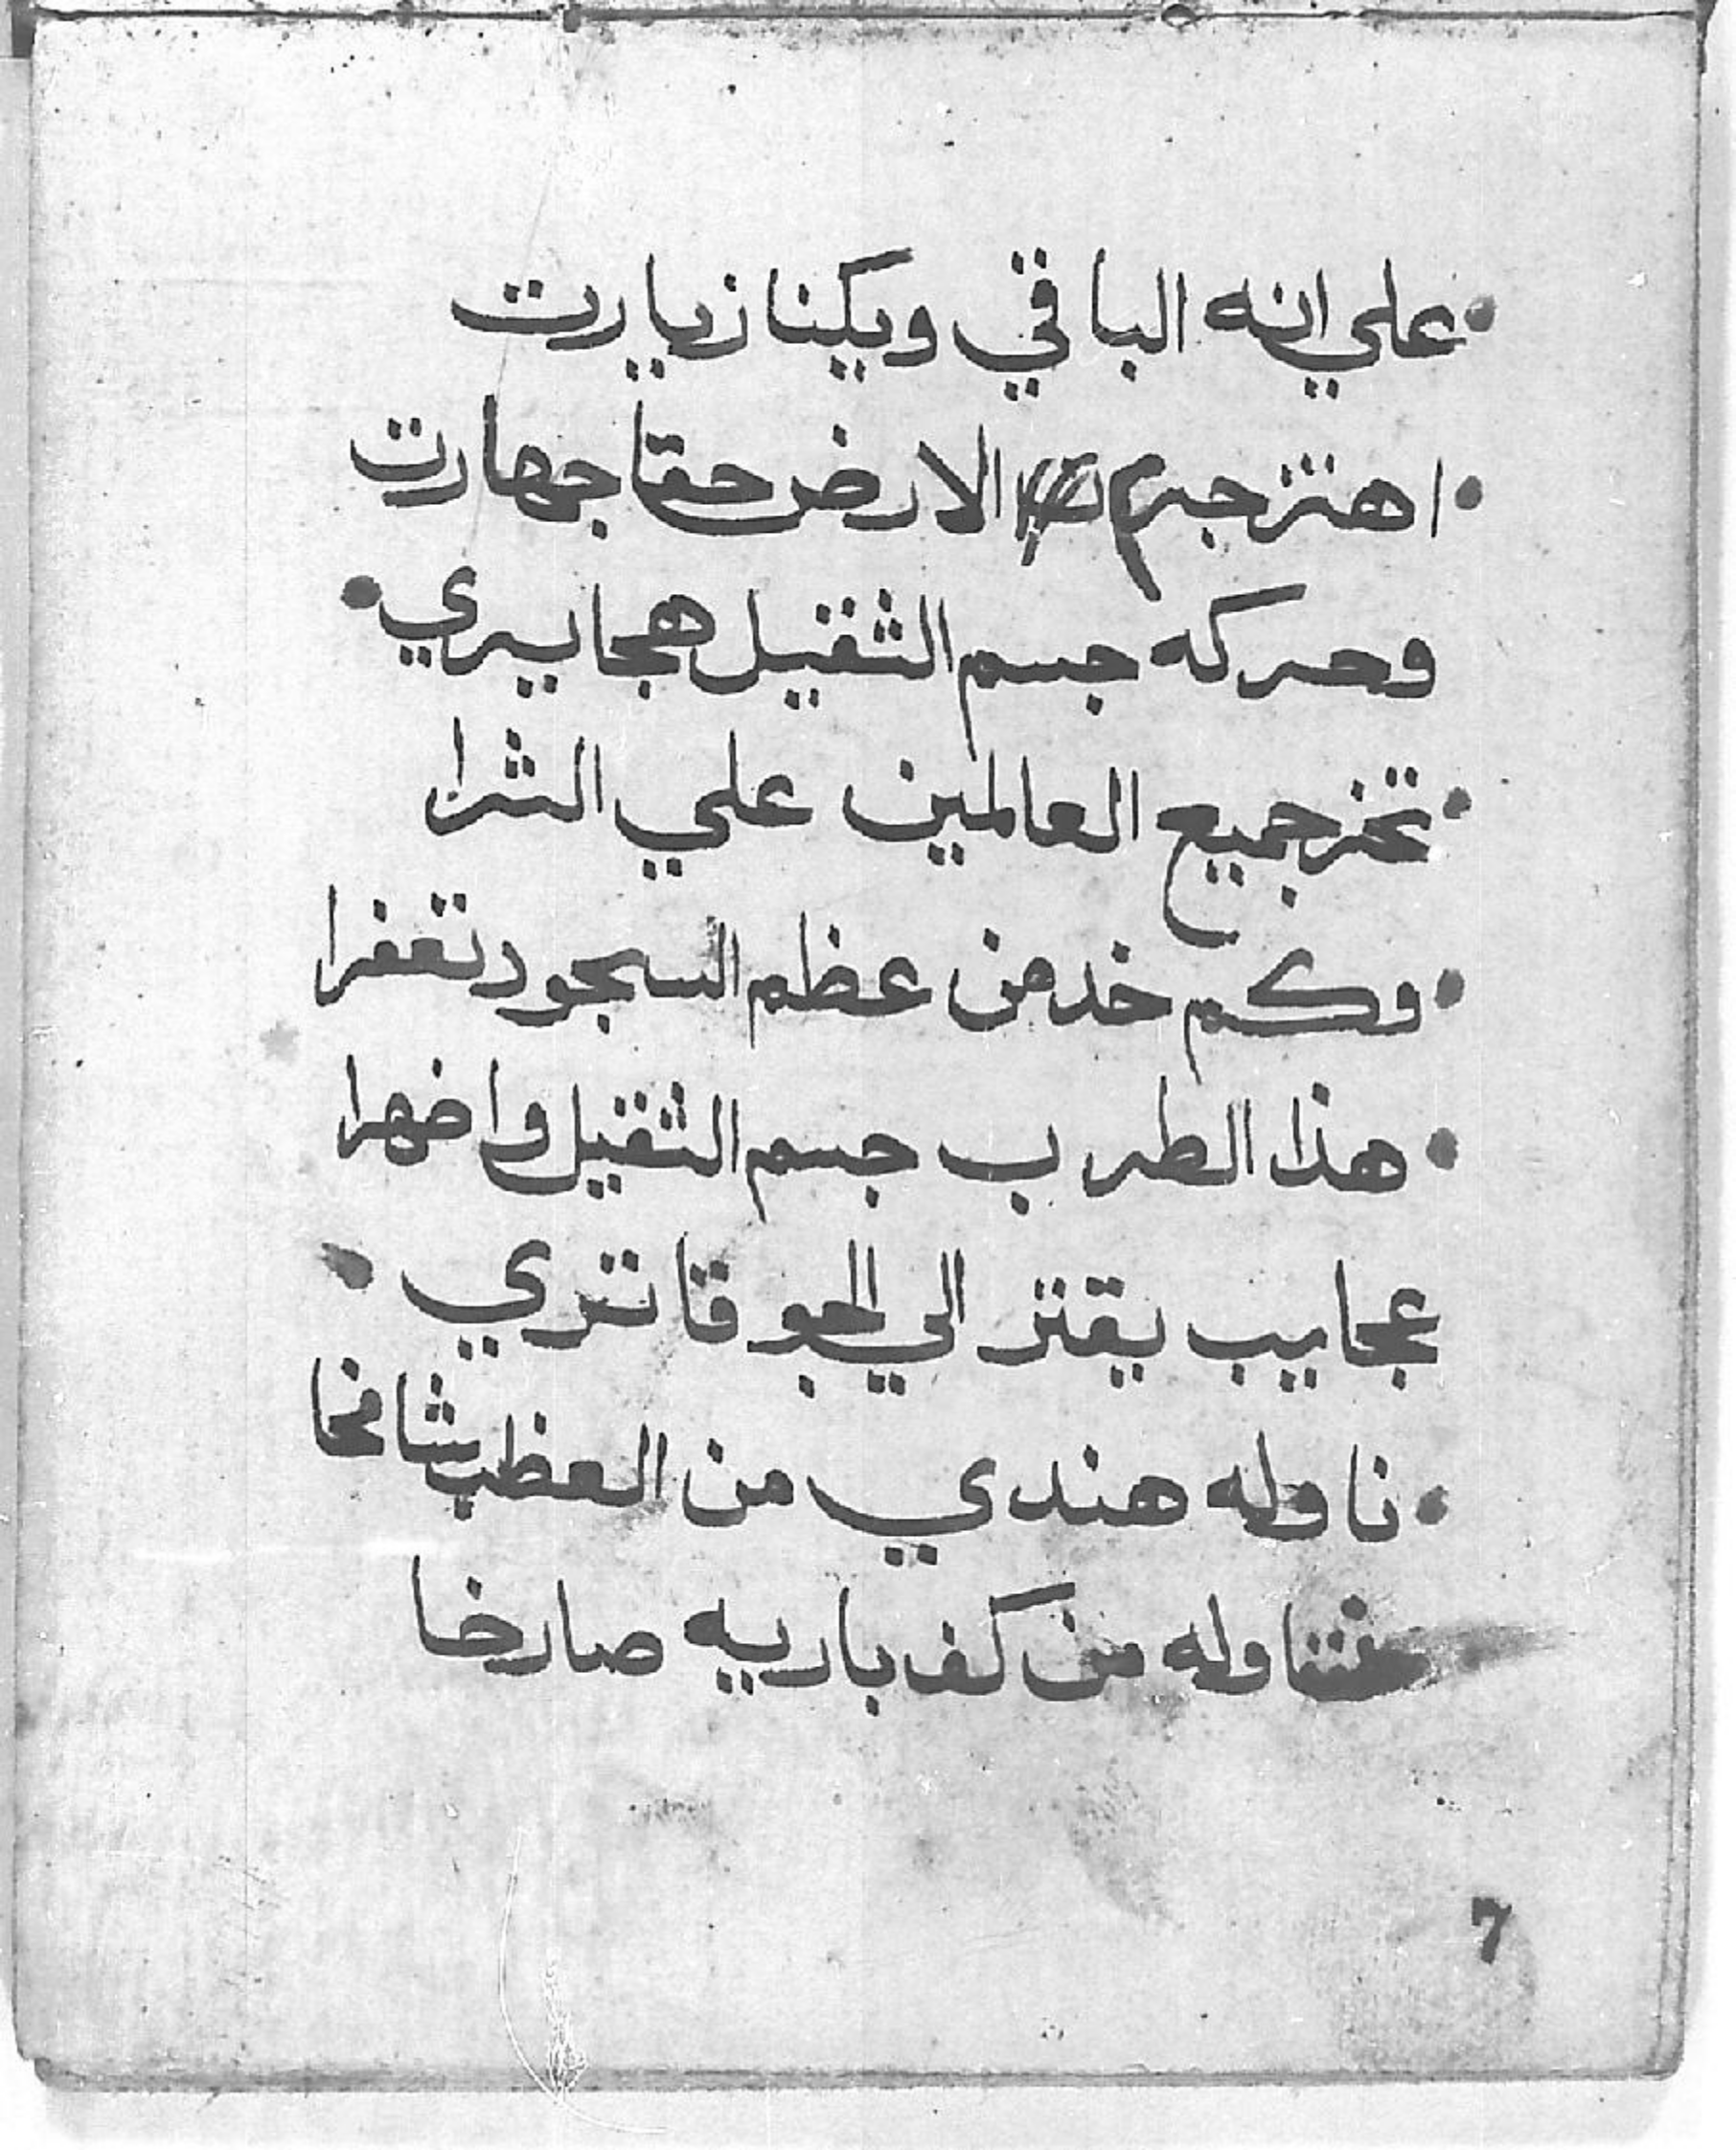 • علي انه الباقي ويكنا زيارت
• اهتز جرم الارض حقا جهارت
وحركه جسم الثقيل هجايري •
• تخر جميع العالمين علي الثرا
• وكم خد من عظم السجود تعفرا
• هذا الطرب جسم الثقيل واضهرا
عجايب يقتز الي الجو قا تتري •
• ناوله هندي من العظب شامخا
تناوله من كف باريه صارخا
7